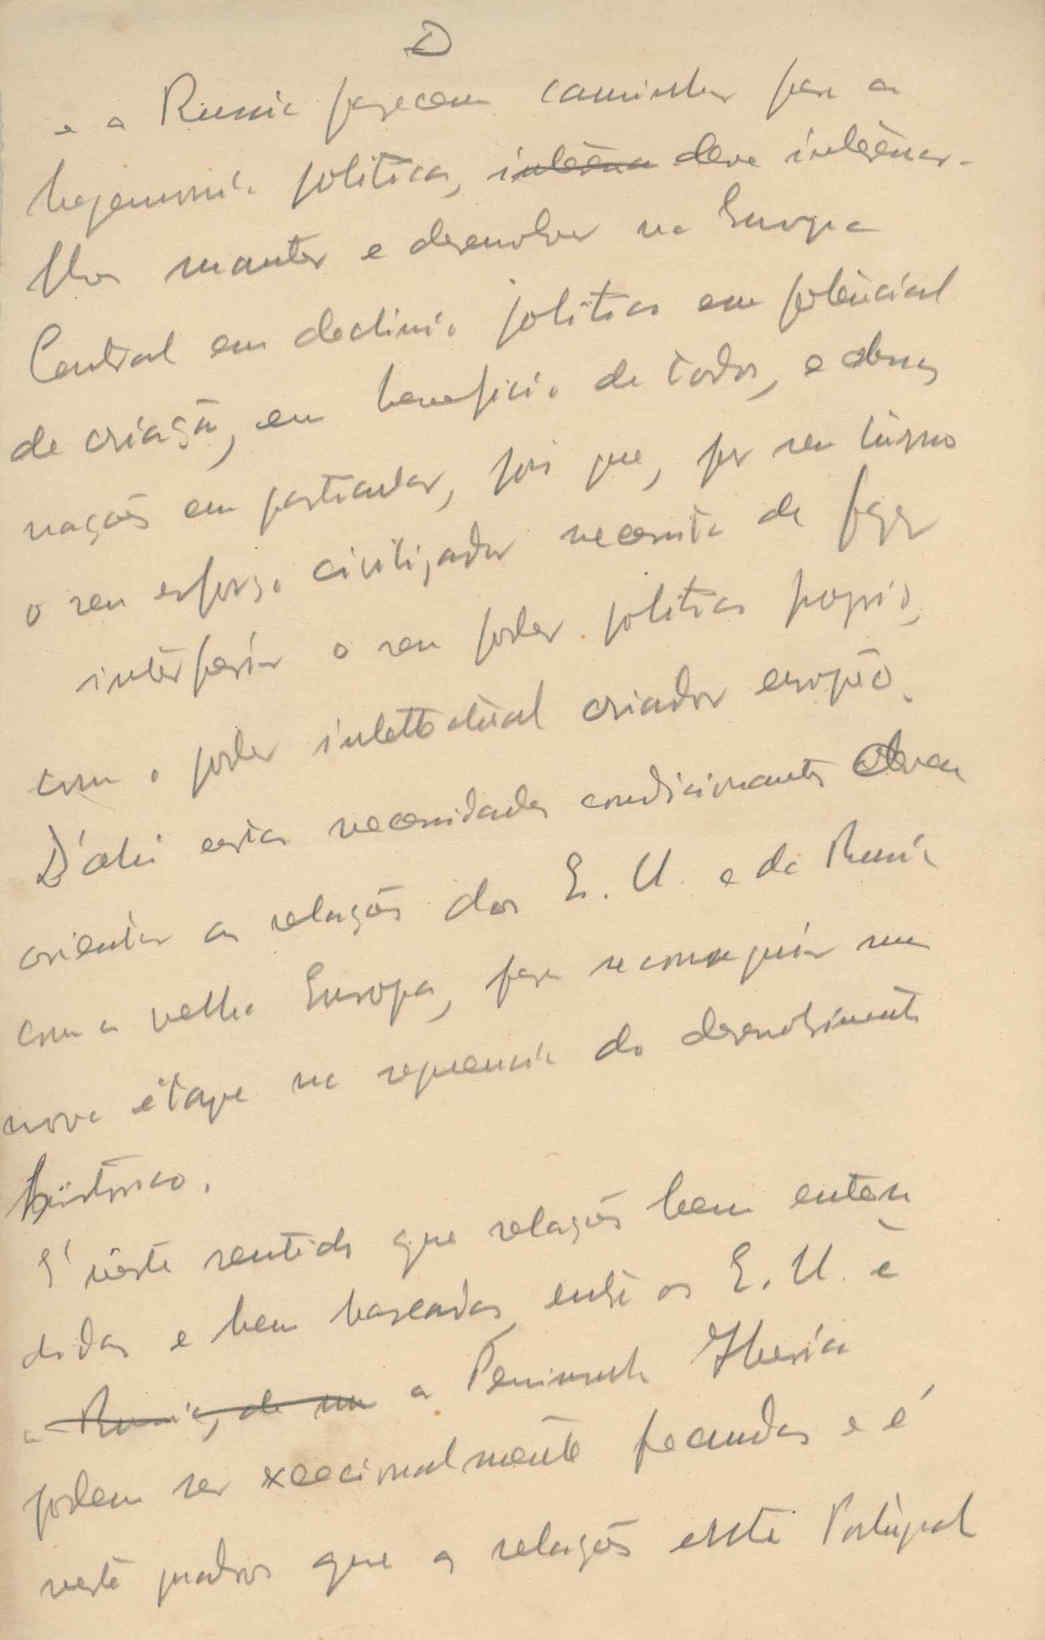 D
e a Russia parecem caminhar para a
hegemonia politica, ~~interessa~~ deve interessar-
lhes manter e desenvolver na Europa
Central em declinio politico um potencial
de criação, em beneficio de todos, e dessas
nações em particular, pois que, por seu turno
o seu esforço civilizador necessita de fazer
interferir o seu poder politico proprio,
com o poder intelectual criador europeu.
D'ahi estas necessidades condicionantes devem
orientar as relações dos E. U. e da Russia
com a velha Europa, para se conseguir uma
nova étape na sequencia do desenvolvimento
historico.
É neste sentido que relações bem enten
didas e bem baseadas entre os E. U. e
~~a Russia, de um~~ a Peninsula Iberia
podem ser excecionalmente fecundas e é
neste quadro que as relações entre Portugal